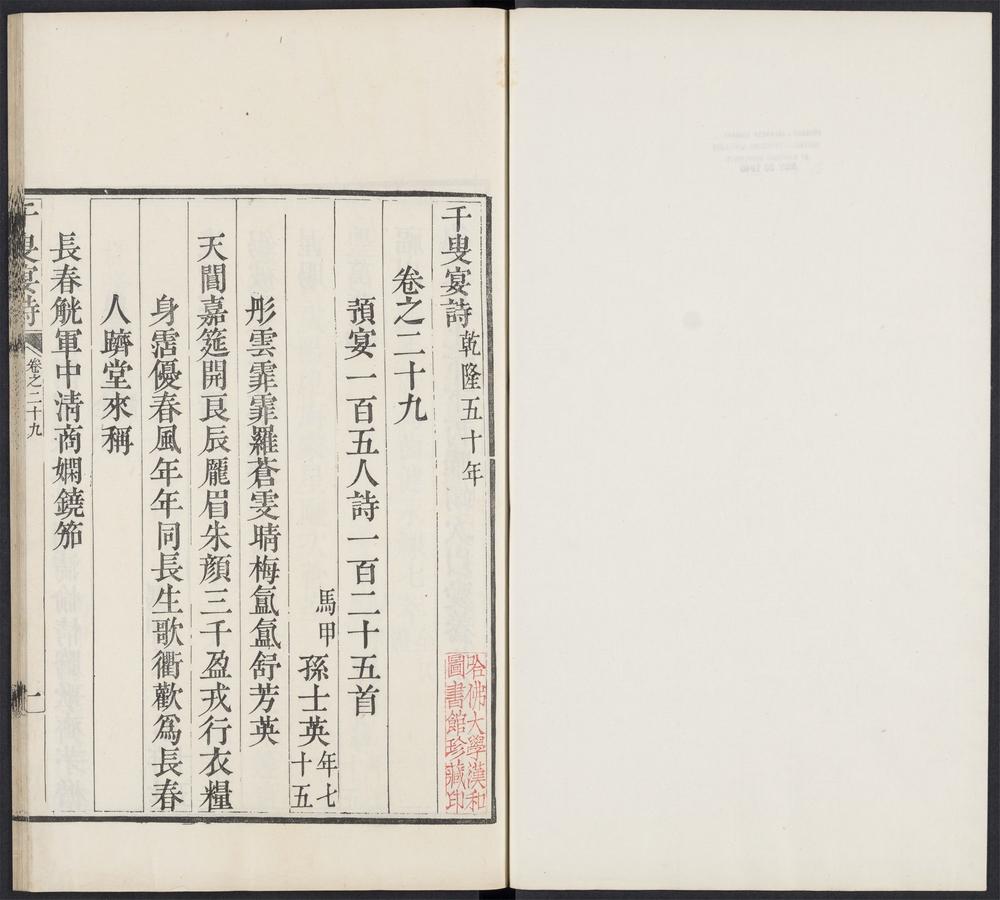 千叟宴詩乾隆五十年
哈佛大學漢和
圖書館珍藏印
卷之二十九
預宴一百五人詩一百二十五首
馬甲孫士英年七十五
彤雲霏霏羅蒼雯晴梅氳氳舒芳英
天閶嘉筵開良辰龐眉朱顔三千盈戎行衣糧
身霑優春風年年同長生歌衢歡爲長春
人躋堂來稱
長春觥軍中淸商嫻鐃笳
千叟宴詩
卷之二十九
一